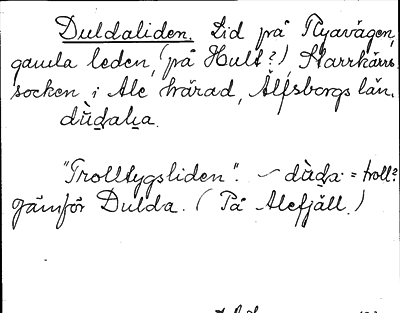 Duldaliden. Lid på Nyavägen,
gamla leden, (på Hult?) Starrkärrs
socken i Ale härad, Älfsborgs län.
dùdalia.
"Trolltygsliden". — dùda = troll?
Jämför Dulda. (På Alefjäll.)